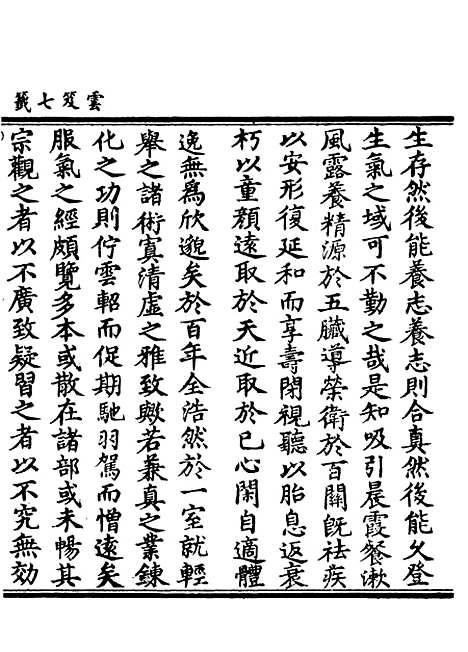 雲笈七籤
生存然後能養志養志則合真然後能久登
生氣之域可不勤之哉是知吸引晨霞餐漱
風露養精源於五臟導榮衛於百關既祛疾
以安形復延和而享壽閉視聽以胎息返衰
朽以童顏遠取於天近取於已心閑自適體
逸無為欣邈矣於百年全浩然於一室就輕
舉之諸術寘清虛之雅致歟若兼真之業鍊
化之功則佇雲軺而促期馳羽駕而憎遠矣
服氣之經頗覽多本或散在諸部或未暢其
宗觀之者以不廣致疑習之者以不究無効